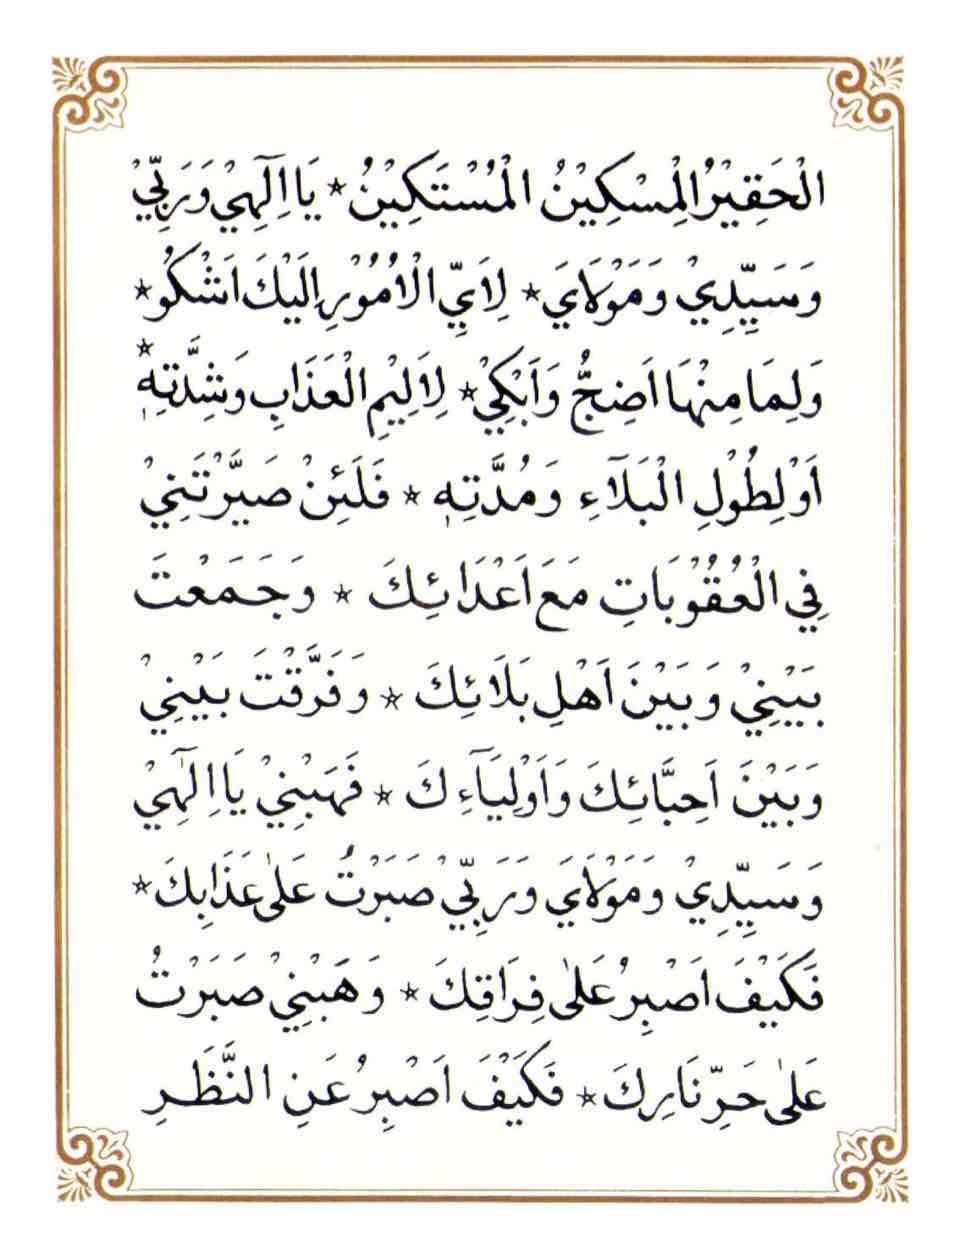 الْحَقِيْرُ الْمِسْكِيْنُ الْمُسْتَكِيْنُ * يَا اِلٓهِيْ وَرَبِّيْ
وَسَيِّدِيْ وَمَوْلَايَ * لِاَيِّ الْاُمُوْرِ اِلَيْكَ اَشْكُوْ *
وَلِمَا مِنْهَا اَضِجُّ وَاَبْكِيْ * لِاَلِيْمِ الْعَذَابِ وَشِدَّتِهٖ *
اَوْلِطُوْلِ الْبَلَآءِ وَمُدَّتِهٖ * فَلَئِنْ صَيَّرْتَنِيْ
فِي الْعُقُوْبَاتِ مَعَ اَعْدَائِكَ * وَجَمَعْتَ
بَيْنِيْ وَبَيْنَ اَهْلِ بَلَائِكَ * وَفَرَّقْتَ بَيْنِيْ
وَبَيْنَ اَحِبَّائِكَ وَاَوْلِيَآءِكَ * فَهَبْنِيْ يَا اِلٰٓهِيْ
وَسَيِّدِيْ وَمَوْلَايَ وَرَبِّيْ صَبَرْتُ عَلٰى عَذَابِكَ *
فَكَيْفَ اَصْبِرُ عَلٰى فِرَاقِكَ * وَهَبْنِيْ صَبَرْتُ
عَلٰى حَرِّ نَارِكَ * فَكَيْفَ اَصْبِرُ عَنِ النَّظَرِ